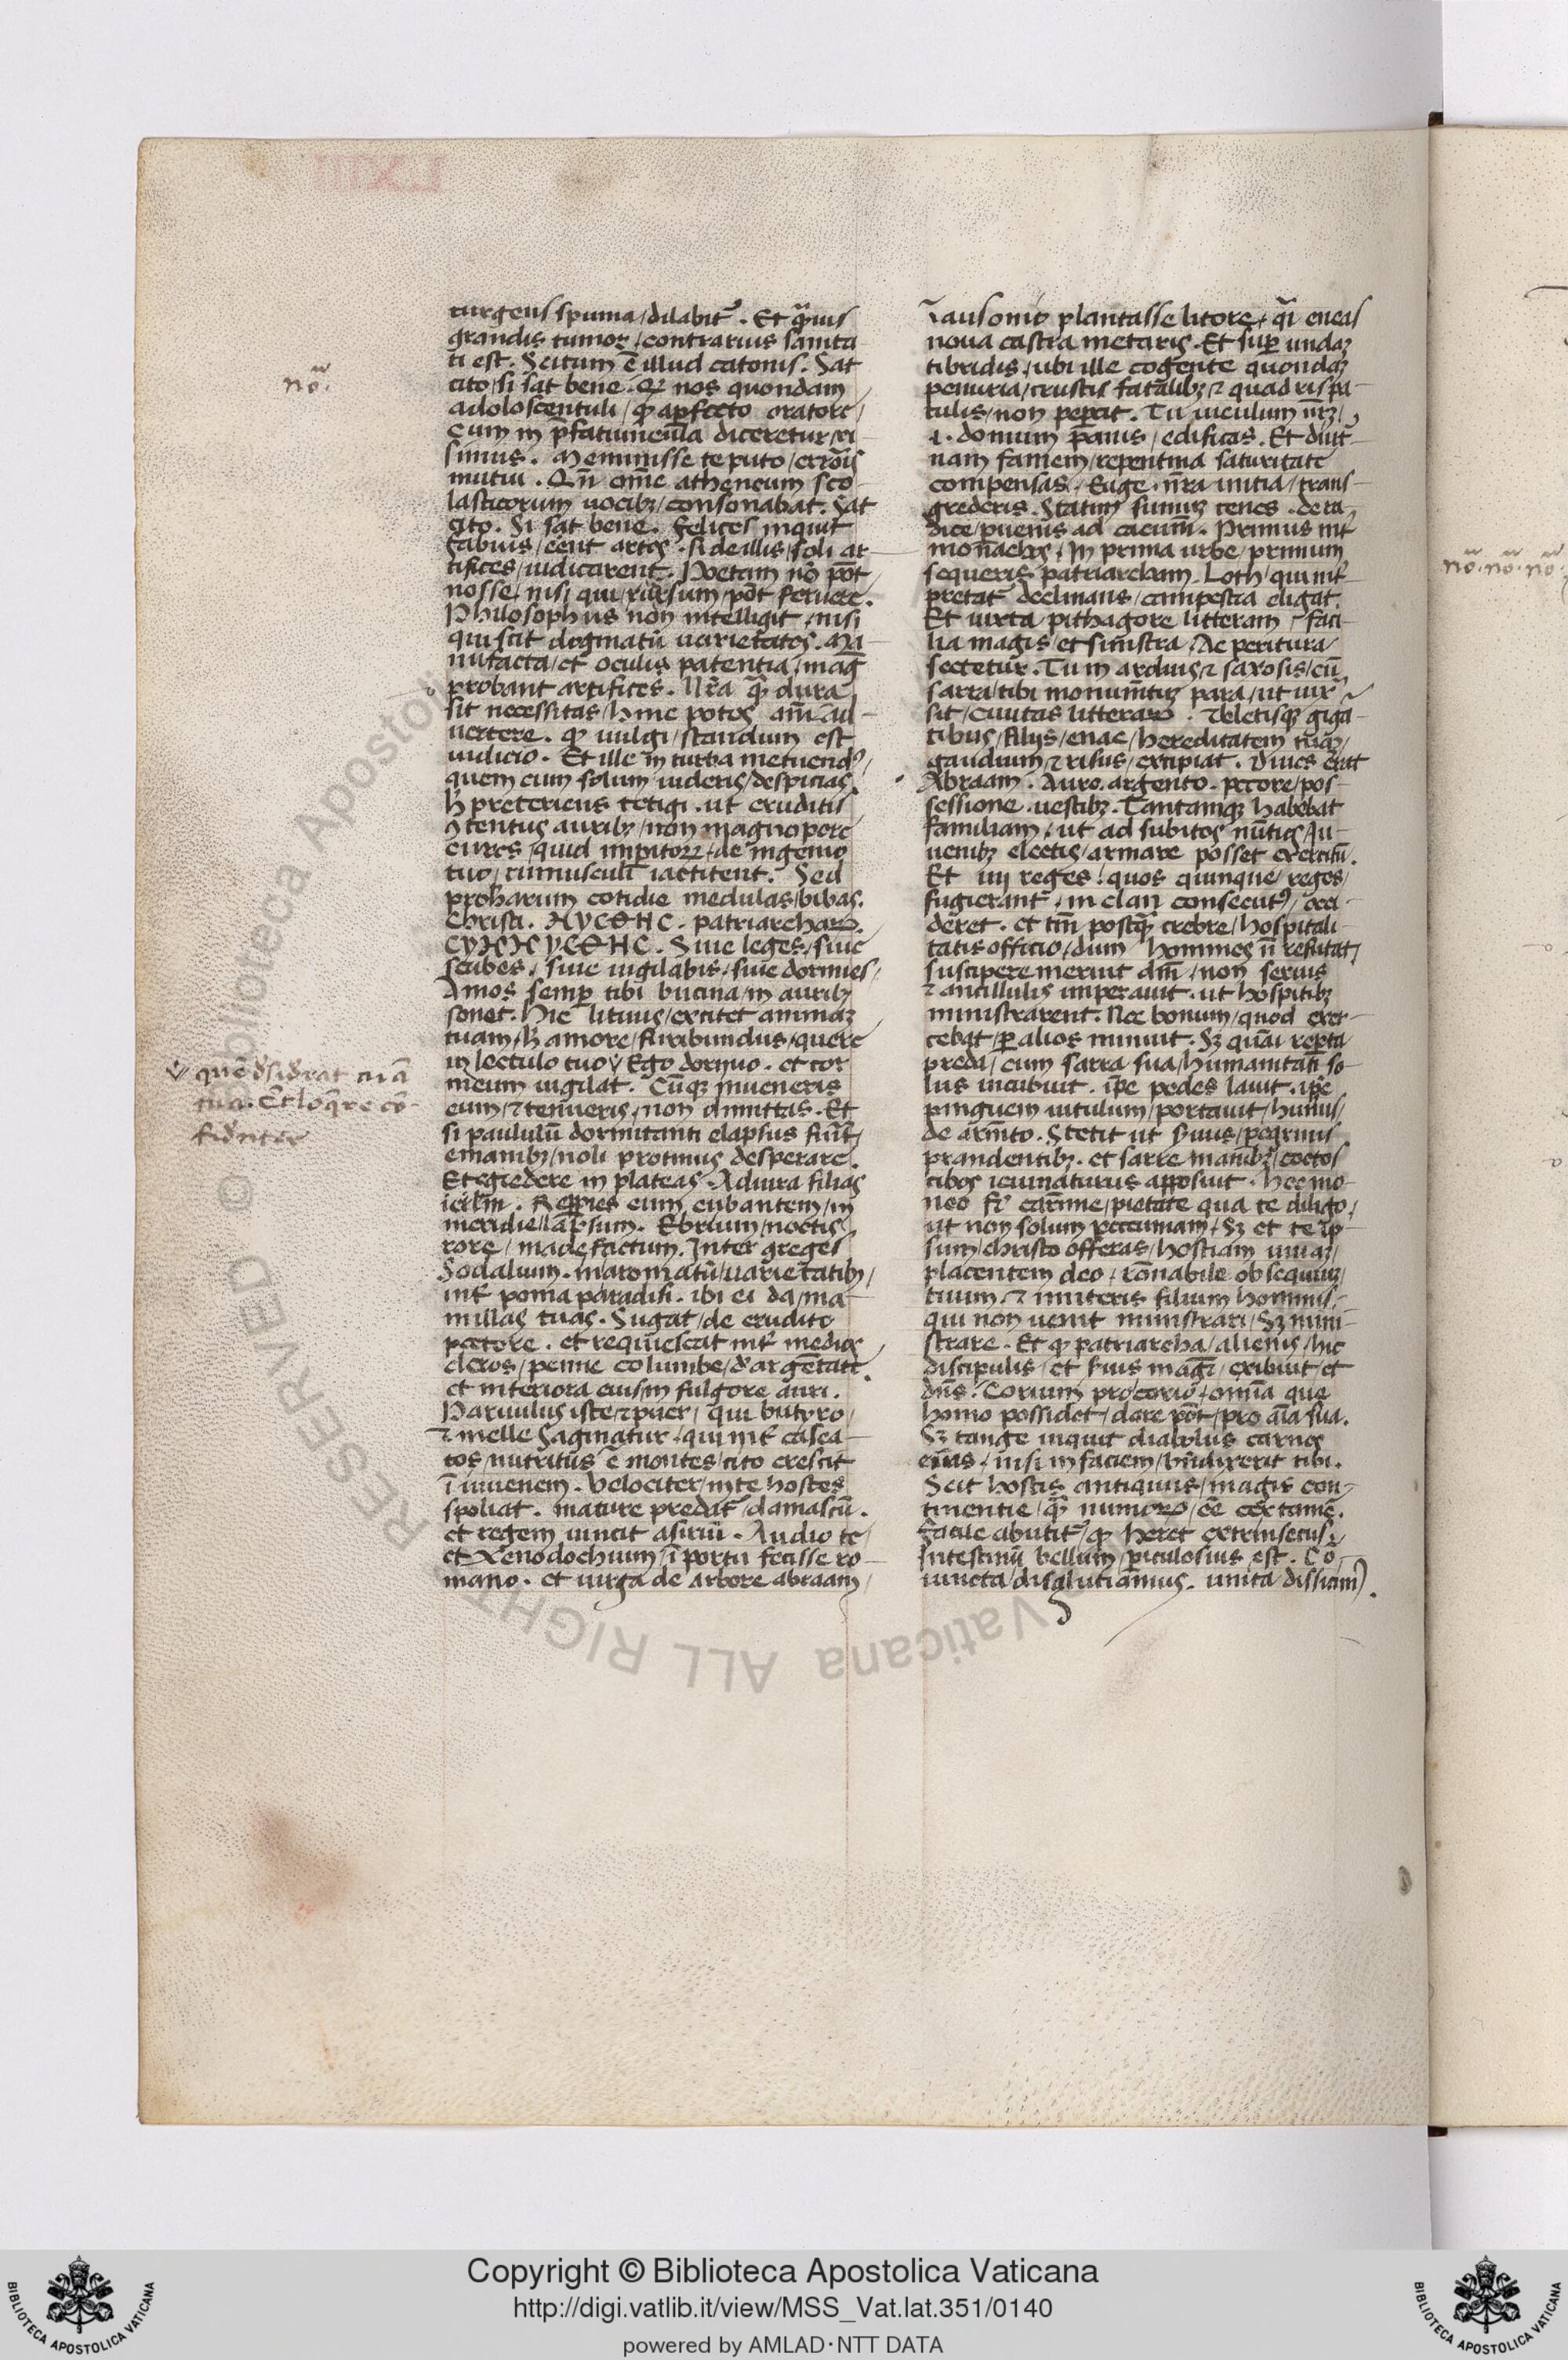 turgens spuma / dilabit᷒. Et q̄uis
grandis tumor / contrarius sanita
ti est. Scitum ē illud catonis. Sat
cito / si sat bene. Qꝫ nos quondam
adoloscentuli / qͥ a ꝑfecto oratore /
cum in p̄fatiuncula diceretur / ri
simus. Meminisse te puto / erroris
mutui. Qn̄ om̄e atheneum sco
lasticorum uocibꝫ / consonabat. Sat
cito. Si sat bene. felices inquit
fabius / eēnt artes. si de illis / soli ar
tifices / iudicarent. Poetam nō pōt
nosse / nisi qui / uersum / pōt struere.
Philosophus non intelligit / nisi
qui scit dogmatū uarietates. Ma
nufacta / et oculis patentia / maḡ
probant artifices. Nr̄a q̄ dura
sit necessitas / hinc potes aīmad
uertere. qͥ uulgi / standum est
iudicio. Et ille in turba metuendꝰ /
quem cum solum uideris / despicias.
h̄ preteriens tetigi. ut eruditis
ꝯtentus auribꝫ / non magnopere
cures / quid imꝑitorꝝ / de ingenio
tuo / rumusculi iactitent. Sed
proharum cotidie medulas / bibas.
Christi. ΜΥCΘΗC. patriarchaꝝ.
CΥΜΜΥCΘΗC. Siue leges / siue
scribes / siue uigilabis / siue dormies /
Amos semꝑ tibi bucina / in auribꝫ
sonet. Hic lituus / excitet animaꝫ
tuam / h̄ amore / furibundus / quere
in lectulo tuo Ego dormio. et cor
meum uigilat. Cūqꝫ inueneris
eum / ⁊ tenueris / non dimittas. Et
si paululū dormitanti elapsus fuit᷒ /
e manibꝫ / noli protinus desperare.
Et egredere in plateas. Adiura filias
ierl̄m. Reꝑies eum cubantem / in
meridie / lapsum. Ebrium / noctis
rore / madefactum. Inter greges
Sodalium. in aromatū / uarietatibꝫ /
int᷒ poma paradisi. ibi ei da / ma
millas tuas. Sugat / de erudito
pectore. et requiescat int᷒ medios
cleros / penne columbe / dargentate
et interiora eius / in fulgore auri.
Paruulus iste / ⁊ puer / qui butyro /
⁊ melle saginatur / qui int᷒ casea
tos / nutritus ē montes / cito crescit
ī iuuenem. Velociter / in te hostes
spoliat. mature predat᷒ / damascū.
et regem uincit asiriū. Audio te /
et Xenodochium / ī portu fecisse ro
mano. et uirga de arbore abraam /
ī ausonio plantasse litore / q̄i eneas
noua castra metaris. Et suꝑ undaꝫ
tibridis / ubi ille cogente quondaꝫ
penuria / crustis fatalibꝫ / ⁊ quadris pa
tulis / non peꝑcit. Tu uiculum nr̄ꝫ /
.i. domum panis / edificas. Et diut᷒
nam famem / repentina saturitate
compensas. Euge. nr̄a initia / trans
grederis. Statim sumꝫ tenes. de ra
dice / ꝑuenis ad cacum̄. Primus int᷒
monachos / in prima urbe / primum
sequeris patriarcham. Loth / qui int᷒
pretat᷒ declinans / campestra eligat.
Et iuxta pithagore litteram / faci
lia magis / et sinistra / Ac peritura
sectetur. Tu in arduis / ⁊ saxosis / cū
sarra / tibi monumtꝫ para / ut iux̄
sit / ciuitas litteraꝝ. Deletisqꝫ giga
tibus / filijs / enac / hereditatem tuaꝫ /
gaudium / ⁊ risus / excipiat. Diues erat
Abraam. Auro. argento. pecore / pos
sessione. uestibꝫ. Tantamqꝫ habebat
familiam / ut ad subitos nūtios / Iu
uenibꝫ electis / armare posset exercitū.
Et iiij reges / quos quinque / reges /
fugierant / in clan consecutꝰ / occi
deret. et tm̄ postq̄ crebre / hospitali
tatis officio / dum homines ñ refutat /
suscipere meruit dn̄m / non seruis
⁊ ancillulis imperauit. ut hospitibꝫ
ministrarent. Nec bonum / quod exer
cebat / ꝑ alios minuit. Sꝫ quāi reꝑta
preda / cum sarra sua / humanitati so
lus incubuit. ip̄e pedes lauit. ip̄e
pinguem uitulum / portauit / humis /
de arm̄to. Stetit ut seruus / ꝑegrinis
prandentibꝫ. et sarre manibꝫ / coctos
cibos ieiunaturus apposuit. Hec mo
neo fr̄ carīme / pietate qua te diligo /
ut non solum peccuniam / Sꝫ et te ip̄
sum / christo offeras / hostiam uiuaꝫ /
placentem deo / rōnabile obsequiuꝫ /
tuum. ⁊ imiteris filium hominis /
qui non uenit ministrari / Sꝫ mini
strare. Et qͥ patriarcha / alienis / hic
discipulis / et seruis maḡr / exibuit / et
dn̄s. Corium pro corio / omnia que
homo possidet / dare pōt / pro aīa sua.
Sꝫ tange inquit diabolus carnes
eius / nisi in faciem / bn̄dixerit tibi.
Scit hostis antiquus / magis con
tinentie / q̄ numoꝝ / eē certamē.
Facile abutit᷒ / qͥ heret extrinsecus /
Intestinū bellum / ꝑiculosius est. Cō
iuncta / disglutiamus. unita dissuim᷒.
nō.
quē dsiderat aīa
tua. Et loq̄re cō-
fidnter
nō. nō. nō.
LXIII
RESERVED © Biblioteca Apostolica Vaticana ALL RIGHT
Copyright © Biblioteca Apostolica Vaticana
http://digi.vatlib.it/view/MSS_Vat.lat.351/0140
powered by AMLAD·NTT DATA
BIBLIOTECA APOSTOLICA VATICANA
BIBLIOTECA APOSTOLICA VATICANA